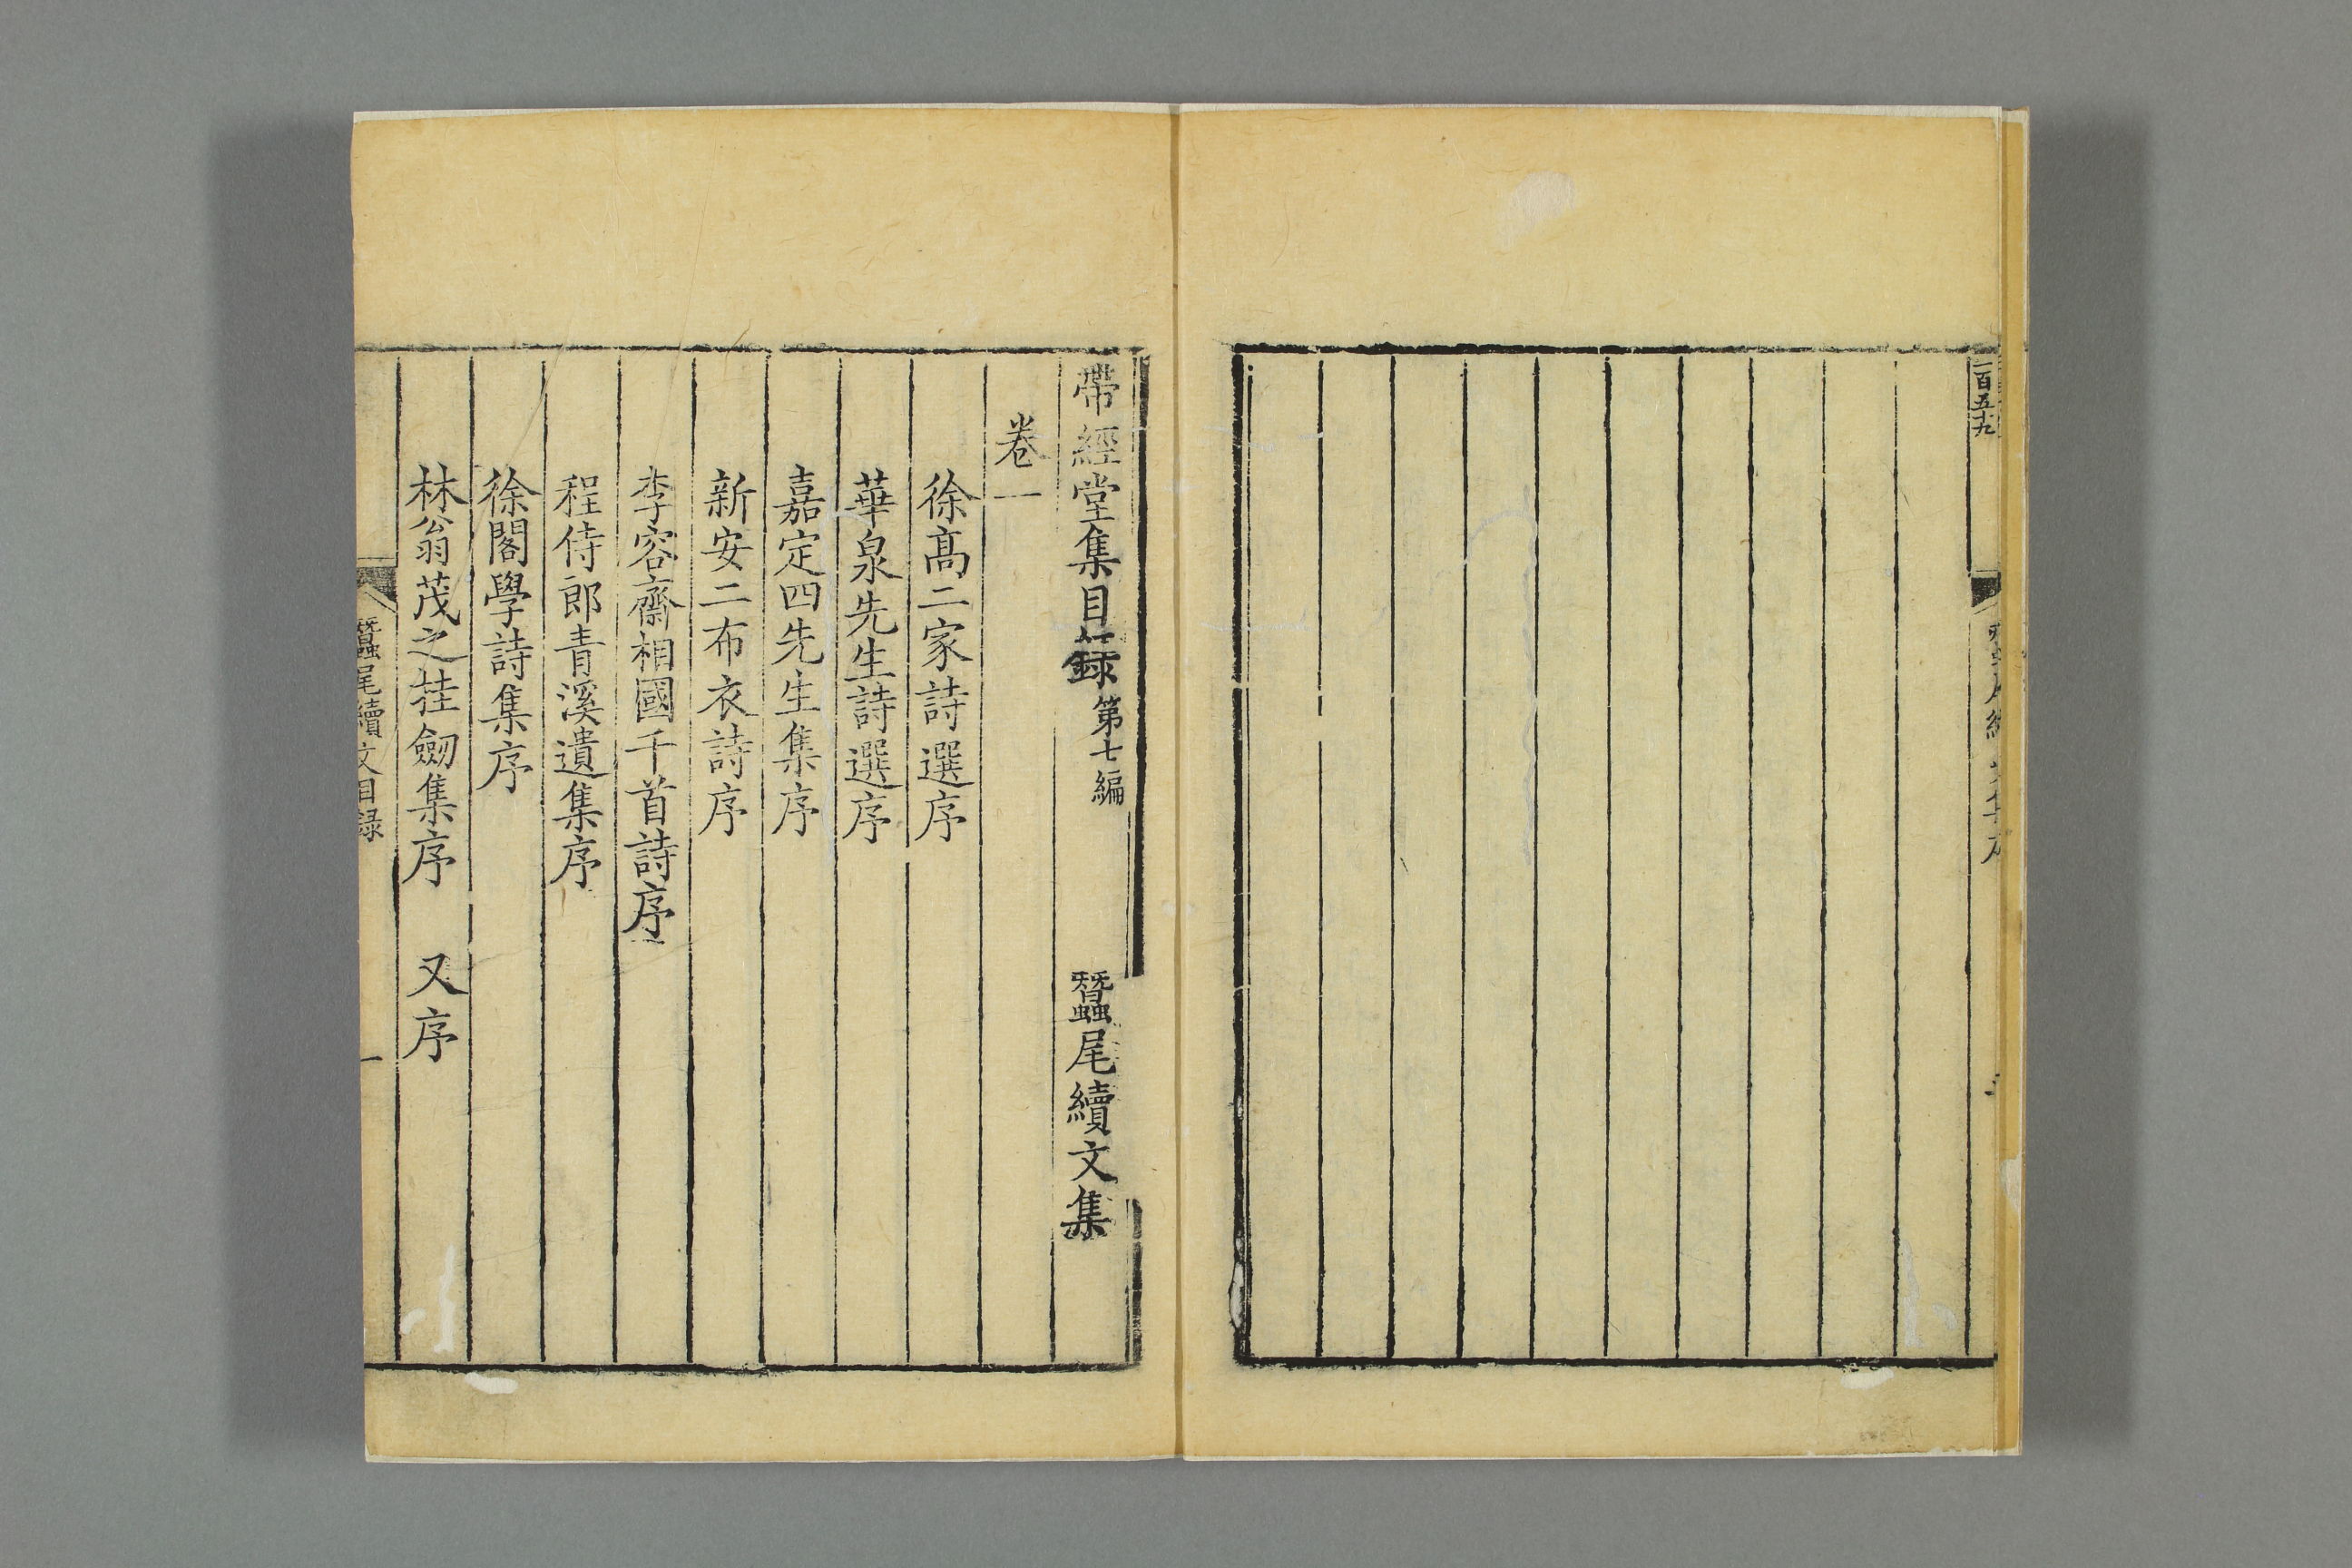 一百五九
帶經堂集目録 第七編 蠶尾續文集
卷一
徐高二家詩選序
華泉先生詩選序
嘉定四先生集序
新安二布衣詩序
李容齋相國千首詩序
程侍郎青溪遺集序
徐閣學詩集序
林翁茂之挂劒集序 又序
蠶尾續文目録 一